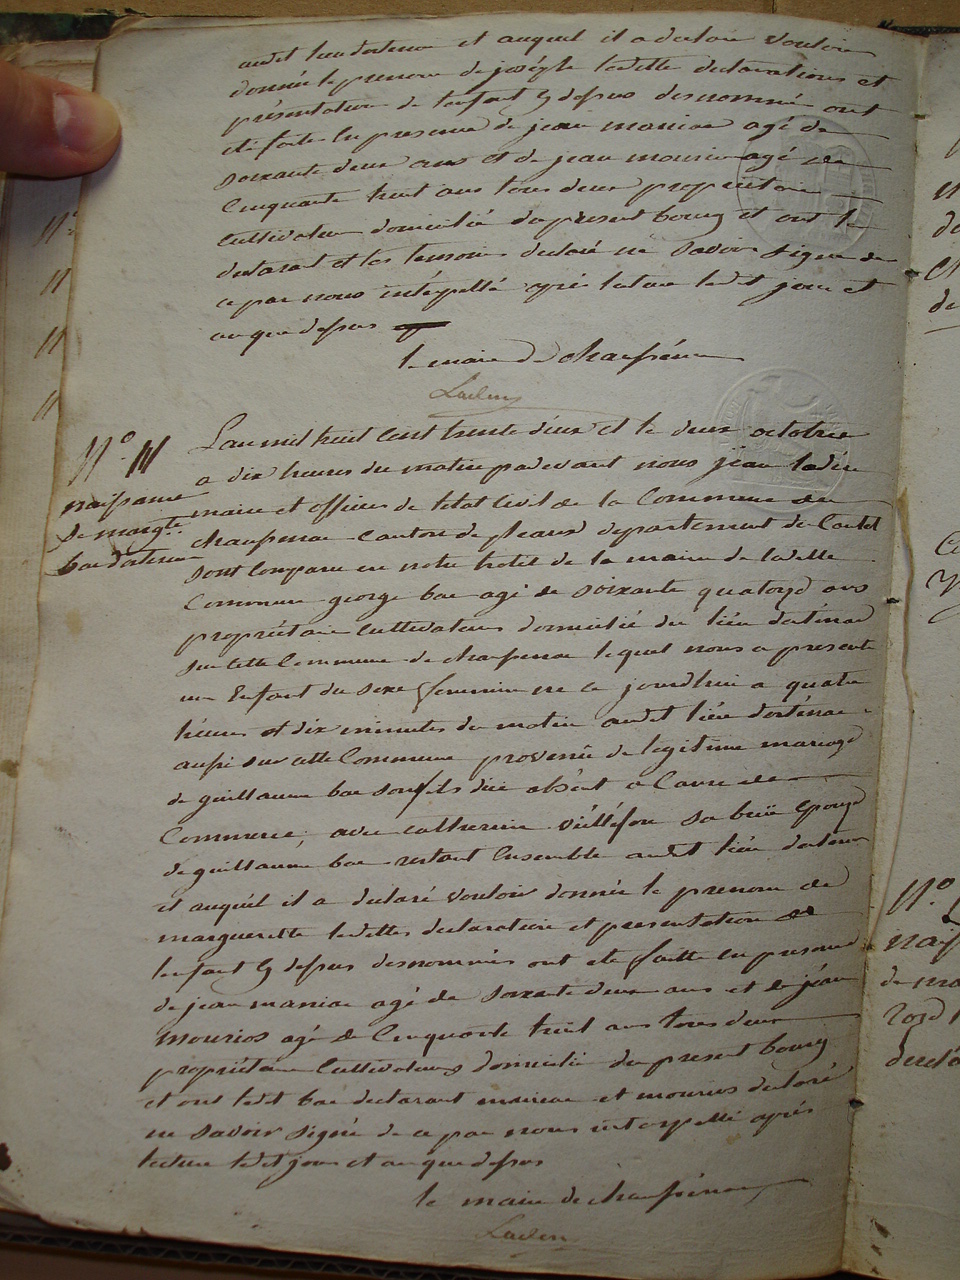 audit lieu dostenac et auquel il a declaré vouloir
donnée le prenom de joseph lesdittes declarations et
présentation de lenfant cy dessus desnommé ont
eté faite en presence de jean maniac agé de
soixante deux ans et de jean mourios agé de
cinquante huit ans tous deux proprietaire
cultivateur domicilié du present bourg et ont le
declarant et les temoins declaré ne savoir signé de
ce par nous intérpellé après lecture ledit jour et
an que dessus
le maire de chaussenac
Ladein
N° 111
naissance
de margte
bac dostenac
Lan mil huit cent trente deux et le deux octobre
a dix heures du matin pardevant nous jean ladein
maire et officier de letat civil de la commune de
chaussenac canton de pleaux departement du Cantal
sont comparu en notre hotel de la mairie de laditte
commune george bac agé de soixante quatorze ans
propriétaire cultivateur domicilié du lieu dosténac
sur cette commune de chaussenac lequel nous a presenté
un Enfant du sexe feminin né ce jourdhui a quatre
heures et dix minutes du matin audit lieu dosténac
aussi sur cette commune provenu de legitime mariage
de guillaume bac son fils absent a Cause de
Commerce, avec catherine véilléfon sa bru épouse
de guillaume bac restant ensemble audit lieu dostenac
et auquél il a declaré vouloir donnée le prenom de
marguerite lesdittes declaration et presentation de
lenfant cy dessus desnommés ont eté faitte en presence
de jean maniac agé de soixante deux ans et de jéan
mourios agé de cinquante huit ans tous deux
propriétaire cultivateurs domicilié du present bourg
et ont ledit bac declarant maniac et mourios declaré
ne savoir signé de ce par nous intérpellé après
lecture ledit jour et an que dessus
le maire de chaussénac
Ladein
N°